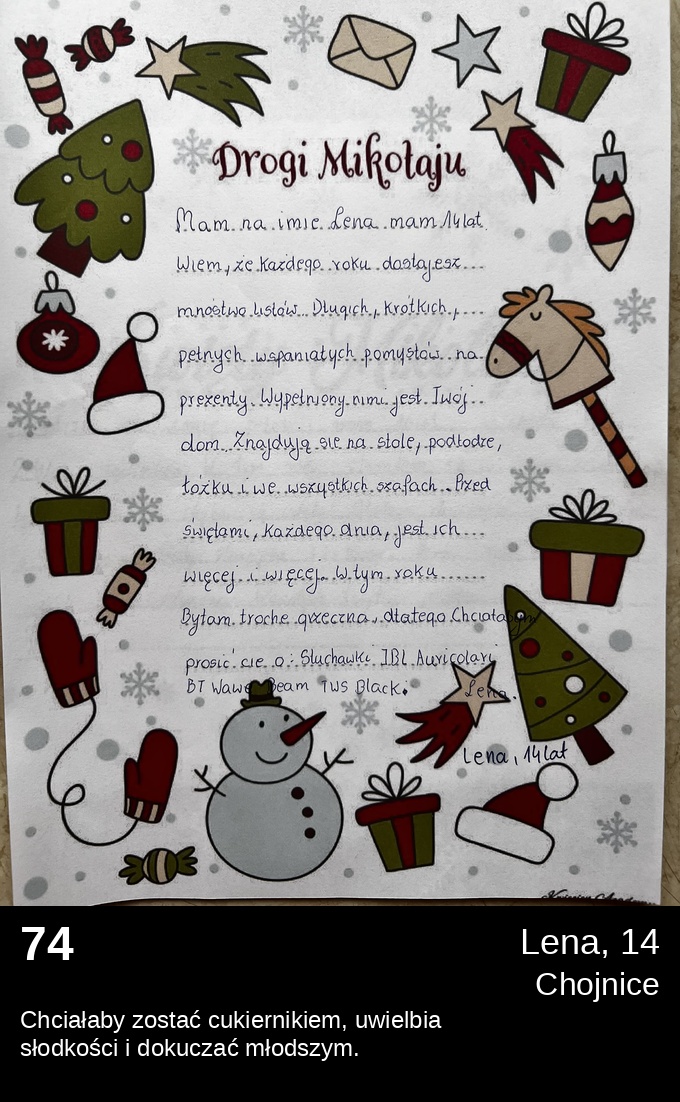 Drogi Mikołaju
Mam na imie Lena mam 14 lat.
Wiem, że każdego roku dostajesz
mnóstwo listów. Długich, krótkich,
pełnych wspaniałych pomysłów na
prezenty. Wypełniony nimi jest Twój
dom. Znajdują się na stole, podłodze,
łóżku i we wszystkich szafach. Przed
świętami, każdego dnia, jest ich
więcej i więcej. W tym roku
Byłam troche grzeczna, dlatego Chciałabym
prosić cie o: Słuchawki JBL Auricolari
BT Wawe Beam TWS Black.
Lena.
Lena, 14 lat
74
Lena, 14
Chojnice
Chciałaby zostać cukiernikiem, uwielbia
słodkości i dokuczać młodszym.